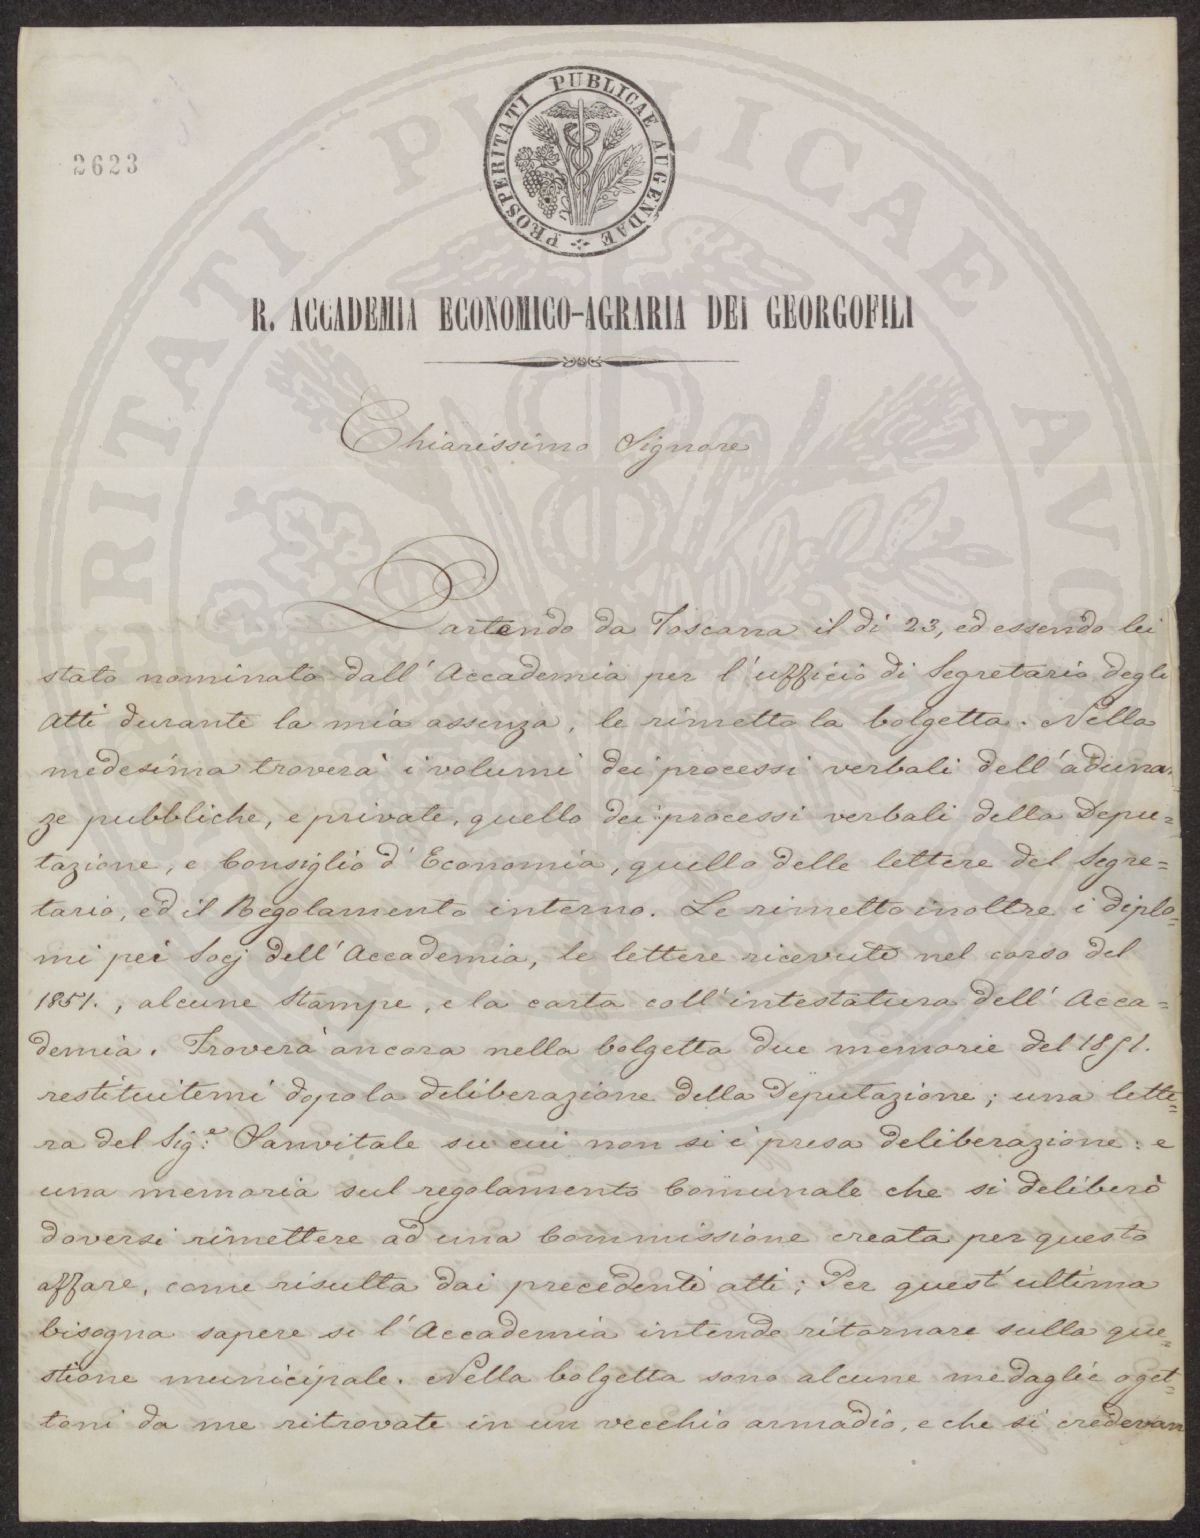 PROSPERITATI PUBLICAE AUGENDAE
2623
R. ACCADEMIA ECONOMICO-AGRARIA DEI GEORGOFILI
Chiarissimo Signore
Partendo da Toscana il dì 23, ed essendo lei
stato nominato dall'Accademia per l'ufficio di Segretario degli
Atti durante la mia assenza, le rimetto la bolgetta. Nella
medesima troverà i volumi dei processi verbali dell'adunan-
ze pubbliche, e private, quello dei processi verbali della Depu=
tazione, e Consiglio d'Economia, quello delle lettere del Segre=
tario, ed il Regolamento interno. Le rimetto inoltre i diplo=
mi pei Socj dell'Accademia, le lettere ricevute nel corso del
1851., alcune stampe, e la carta coll'intestatura dell'Acca=
demia. Troverà ancora nella bolgetta due memorie del 1851.
restituitemi dopo la deliberazione della Deputazione; una lette=
ra del Sig.e Sanvitale su cui non si è presa deliberazione: e
una memoria sul regolamento Comunale che si deliberò
doversi rimettere ad una Commissione creata per questo
affare, come risulta dai precedenti atti; Per quest'ultima
bisogna sapere se l'Accademia intende ritornare sulla que=
stione municipale. Nella bolgetta sono alcune medaglie o get=
toni da me ritrovate in un vecchio armadio, e che si credevan